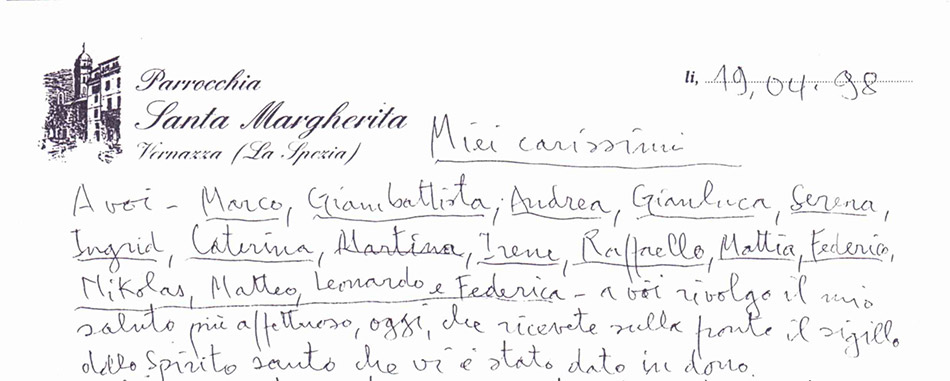 Parrocchia
Santa Margherita
Vernazza (La Spezia)
li, 19.04.98
Miei carissimi
A voi - Marco, Giambattista, Andrea, Gianluca, Serena,
Ingrid, Caterina, Martina, Irene, Raffaello, Mattia, Federico,
Nikolas, Matteo, Leonardo e Federica - a voi rivolgo il mio
saluto più affettuoso, oggi, che ricevete sulla fronte il sigillo
dello Spirito santo che vi è stato dato in dono.